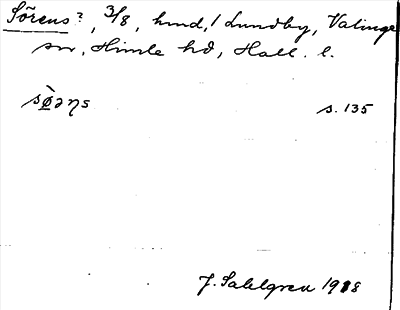 Sörens?, 3/8, hmd, / Lundby, Valinge
sn, Himle hd, Hall. l.
sø̀əɳs s. 135
J. Sahlgren 1918